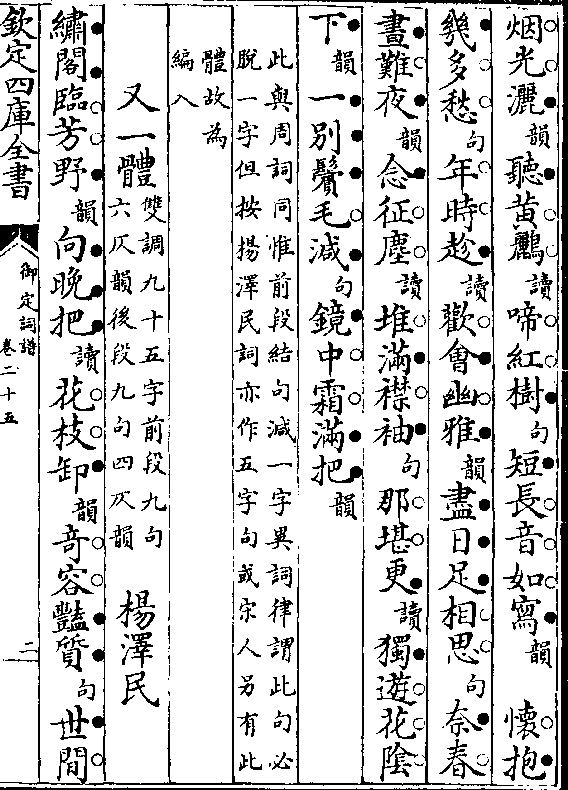 烟光灑韻聽黄鸝讀啼紅樹句短長音如寫韻　懷抱
幾多愁句年時趁讀歡會幽雅韻盡日足相思句奈春
晝難夜韻念征塵讀堆滿襟袖句那堪更讀獨遊花陰
下韻一别鬢毛減句鏡中霜滿把韻
此與周詞同惟前段結句減一字異詞律謂此句必
脱一字但按揚澤民詞亦作五字句或宋人另有此
體故為
編入
又一體
雙調九十五字前段九句
六仄韻後段九句四仄韻
楊澤民
繡閣臨芳野韻向晚把讀花枝卸韻奇容豔質句世間
欽定四庫全書
御定詞譜
卷二十五
二